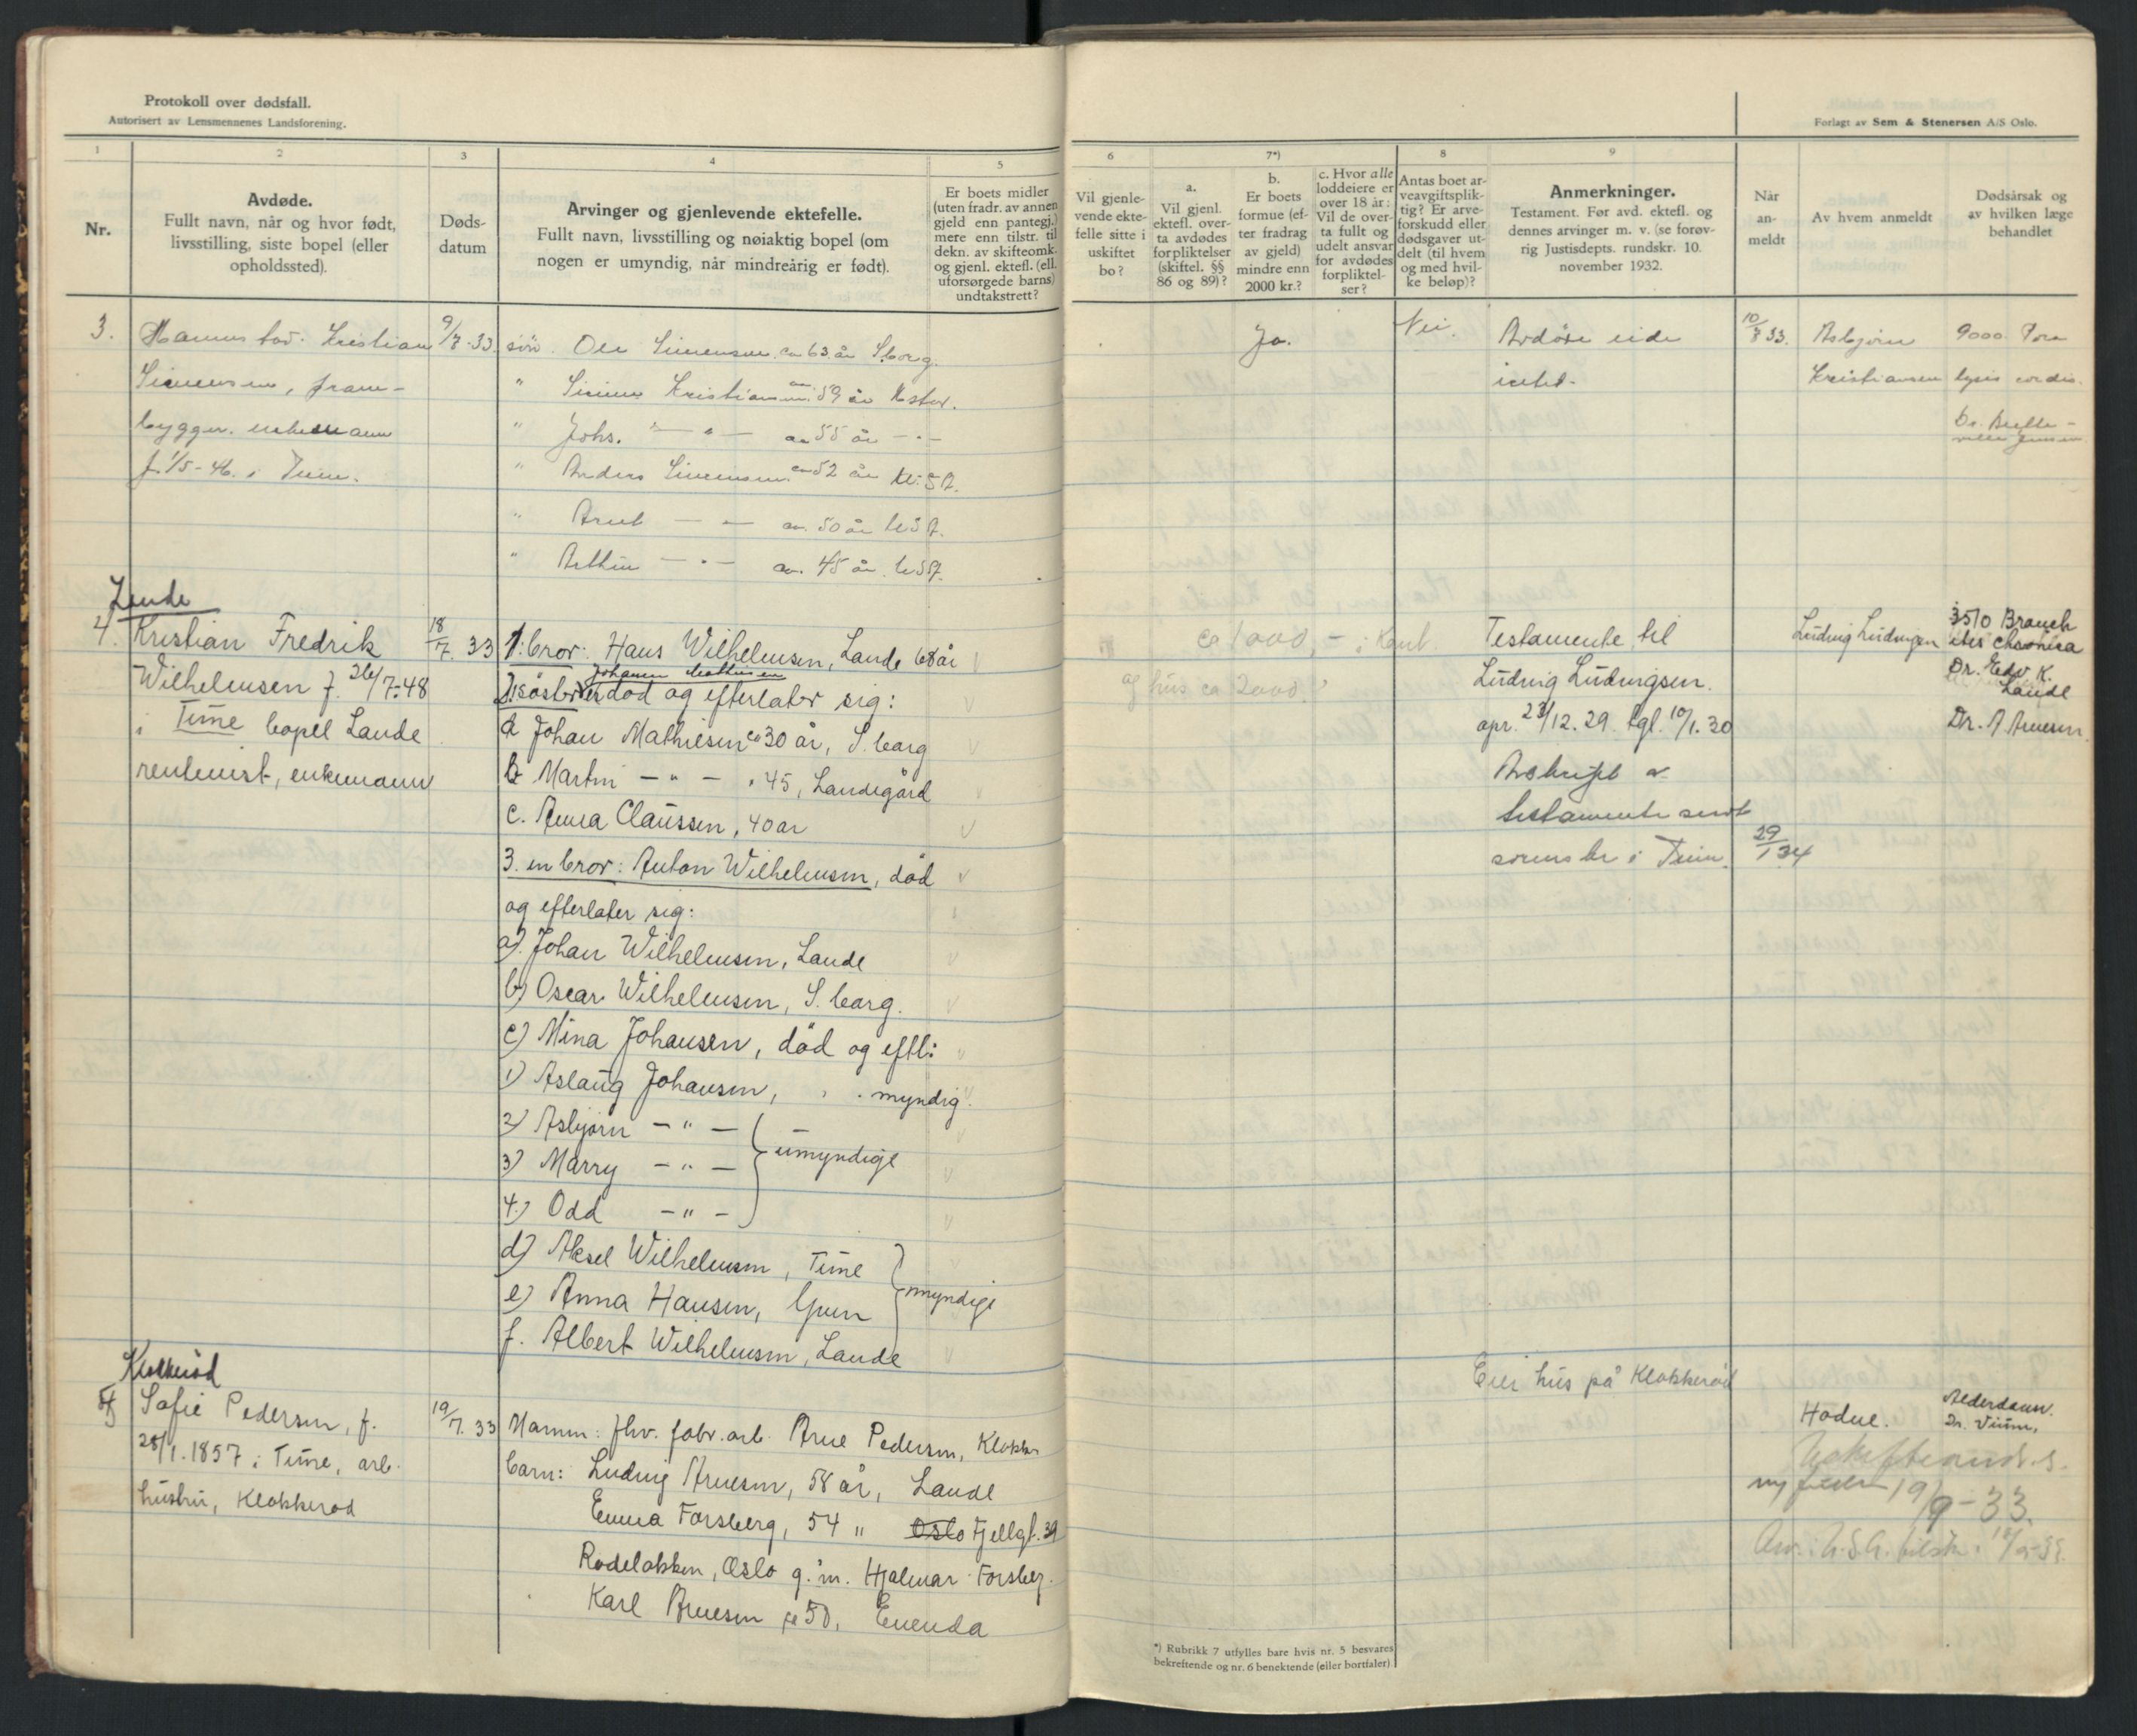 Protokoll over dødsfall.
Autorisert av Lensmennenes Landsforening.
Forlagt av Sem & Stenersen A/S Oslo.
1
2
3
4
5
6
7*)
8
9
Nr.
Avdøde.
Fullt navn, når og hvor født,
livsstilling, siste bopel (eller
opholdssted).
Døds-
datum
Arvinger og gjenlevende ektefelle.
Fullt navn, livsstilling og nøiaktig bopel (om
nogen er umyndig, når mindreårig er født).
Er boets midler
(uten fradr. av annen
gjeld enn pantegj.)
mere enn tilstr. til
dekn. av skifteomk.
og gjenl. ektefl. (ell.
uforsørgede barns)
undtakstrett?
Vil gjenle-
vende ekte-
felle sitte i
uskiftet
bo?
a.
Vil gjenl.
ektefl. over-
ta avdødes
forpliktelser
(skiftel. §§
86 og 89)?
b.
Er boets
formue (ef-
ter fradrag
av gjeld)
mindre enn
2000 kr.?
c. Hvor alle
loddeiere er
over 18 år:
Vil de over-
ta fullt og
udelt ansvar
for avdødes
forpliktel-
ser?
Antas boet ar-
veavgiftsplik-
tig? Er arve-
forskudd eller
dødsgaver ut-
delt (til hvem
og med hvil-
ke beløp)?
Anmerkninger.
Testament. Før avd. ektefl. og
dennes arvinger m. v. (se forøv-
rig Justisdepts. rundskr. 10.
november 1932.
Når
an-
meldt
Av hvem anmeldt
Dødsårsak og
av hvilken læge
behandlet
3. Kristian 9/7-33. søn. Ole Simensen ca 63 år S.borg. Ja. Nei. Avdøde eide 10/7 33. Asbjørn 9000 Para
Simensen, " Simen Kristiansen 59 år intet. Kristiansen lysis cordis.
bygger. enkemann " Johs. — " — ca 55 år — " — Dr.
f. 1/5-46. i Tune. " Anders Simensen ca 52 år
" — " — ca. 50 år
" — " — ca. 45 år
Lande
4. Kristian Fredrik 18/7. 33 1: bror: Hans Wilhelmsen, Lande 68 år ca 1000,- i kont. Testamente til Ludvig Ludvigsen 3510 Bronch
Wilhelmsen f. 26/7-48 2: søster Johanne Mathisen død og efterlater sig: og hus ca 2000 Ludvig Ludvigsen. itis chronica
i Tune bopel Lande a Johan Mathiesen ca 30 år, S. borg opr. 23/12.29. tgl. 10/1.30 Dr. Edv K. Lande
rentenist, enkemann b Martin — " — " 45, Landegård Avskrift av Dr. A Arnesen
c. Anna Claussen, 40 år testamente sendt
3. en bror: Anton Wilhelmsen, død i Tune. 29/1 34
og efterlater sig:
a). Johan Wilhelmsen, Lande
b) Oscar Wilhelmsen, S. borg.
c) Mina Johansen, død og eftl:
1) Aslaug Johansen, myndig.
2) Asbjørn — " —
3) Marry — " — umyndige
4.) Odd — " —
d) Aksel Wilhelmsen, Tune
e) Anna Hansen, Greum myndige
f. Albert Wilhelmsen, Lande
Klokkerød Eier hus på Klokkerød
5 Sofie Pedersen, f. 19/7. 33 Mann: fhv. fabr. arb. Arne Pedersen, Klokker Hodne. Alderdoms.
28/1. 1857 i Tune, arb. barn: Ludvig Arnesen, 58 år, Lande
hustru, Klokkerød Emma Forsberg, 54 " Oslo Fjellgt. 39 19/9-33.
Rodeløkken, Oslo g. m. Hjalmar Forsberg.
Karl Arnesen ca 50,
*) Rubrikk 7 utfylles bare hvis nr. 5 besvares
bekreftende og nr. 6 benektende (eller bortfaller)